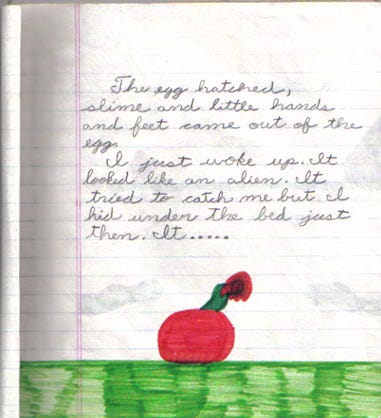 The egg hatched,
slime and little hands
and feet came out of the
egg.
I just woke up. It
looked like an alien. It
tried to catch me but I
hid under the bed just
then. It.....